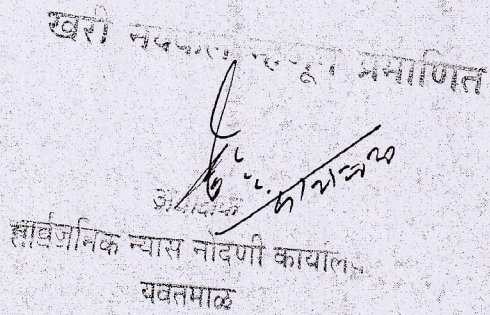 खरी नक्कल म्हणून प्रमाणित
अधीक्षक
सार्वजनिक न्यास नोंदणी कार्यालय
यवतमाळ